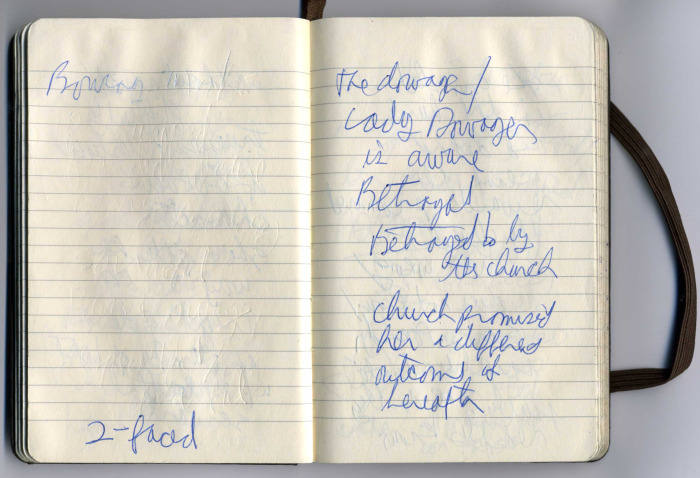 Bowing
2-faced
the dowager/
Lady Dowagers
is aware
Betrayal
Betrayed by
the church
church promised
her a different
outcome, of
hereafter